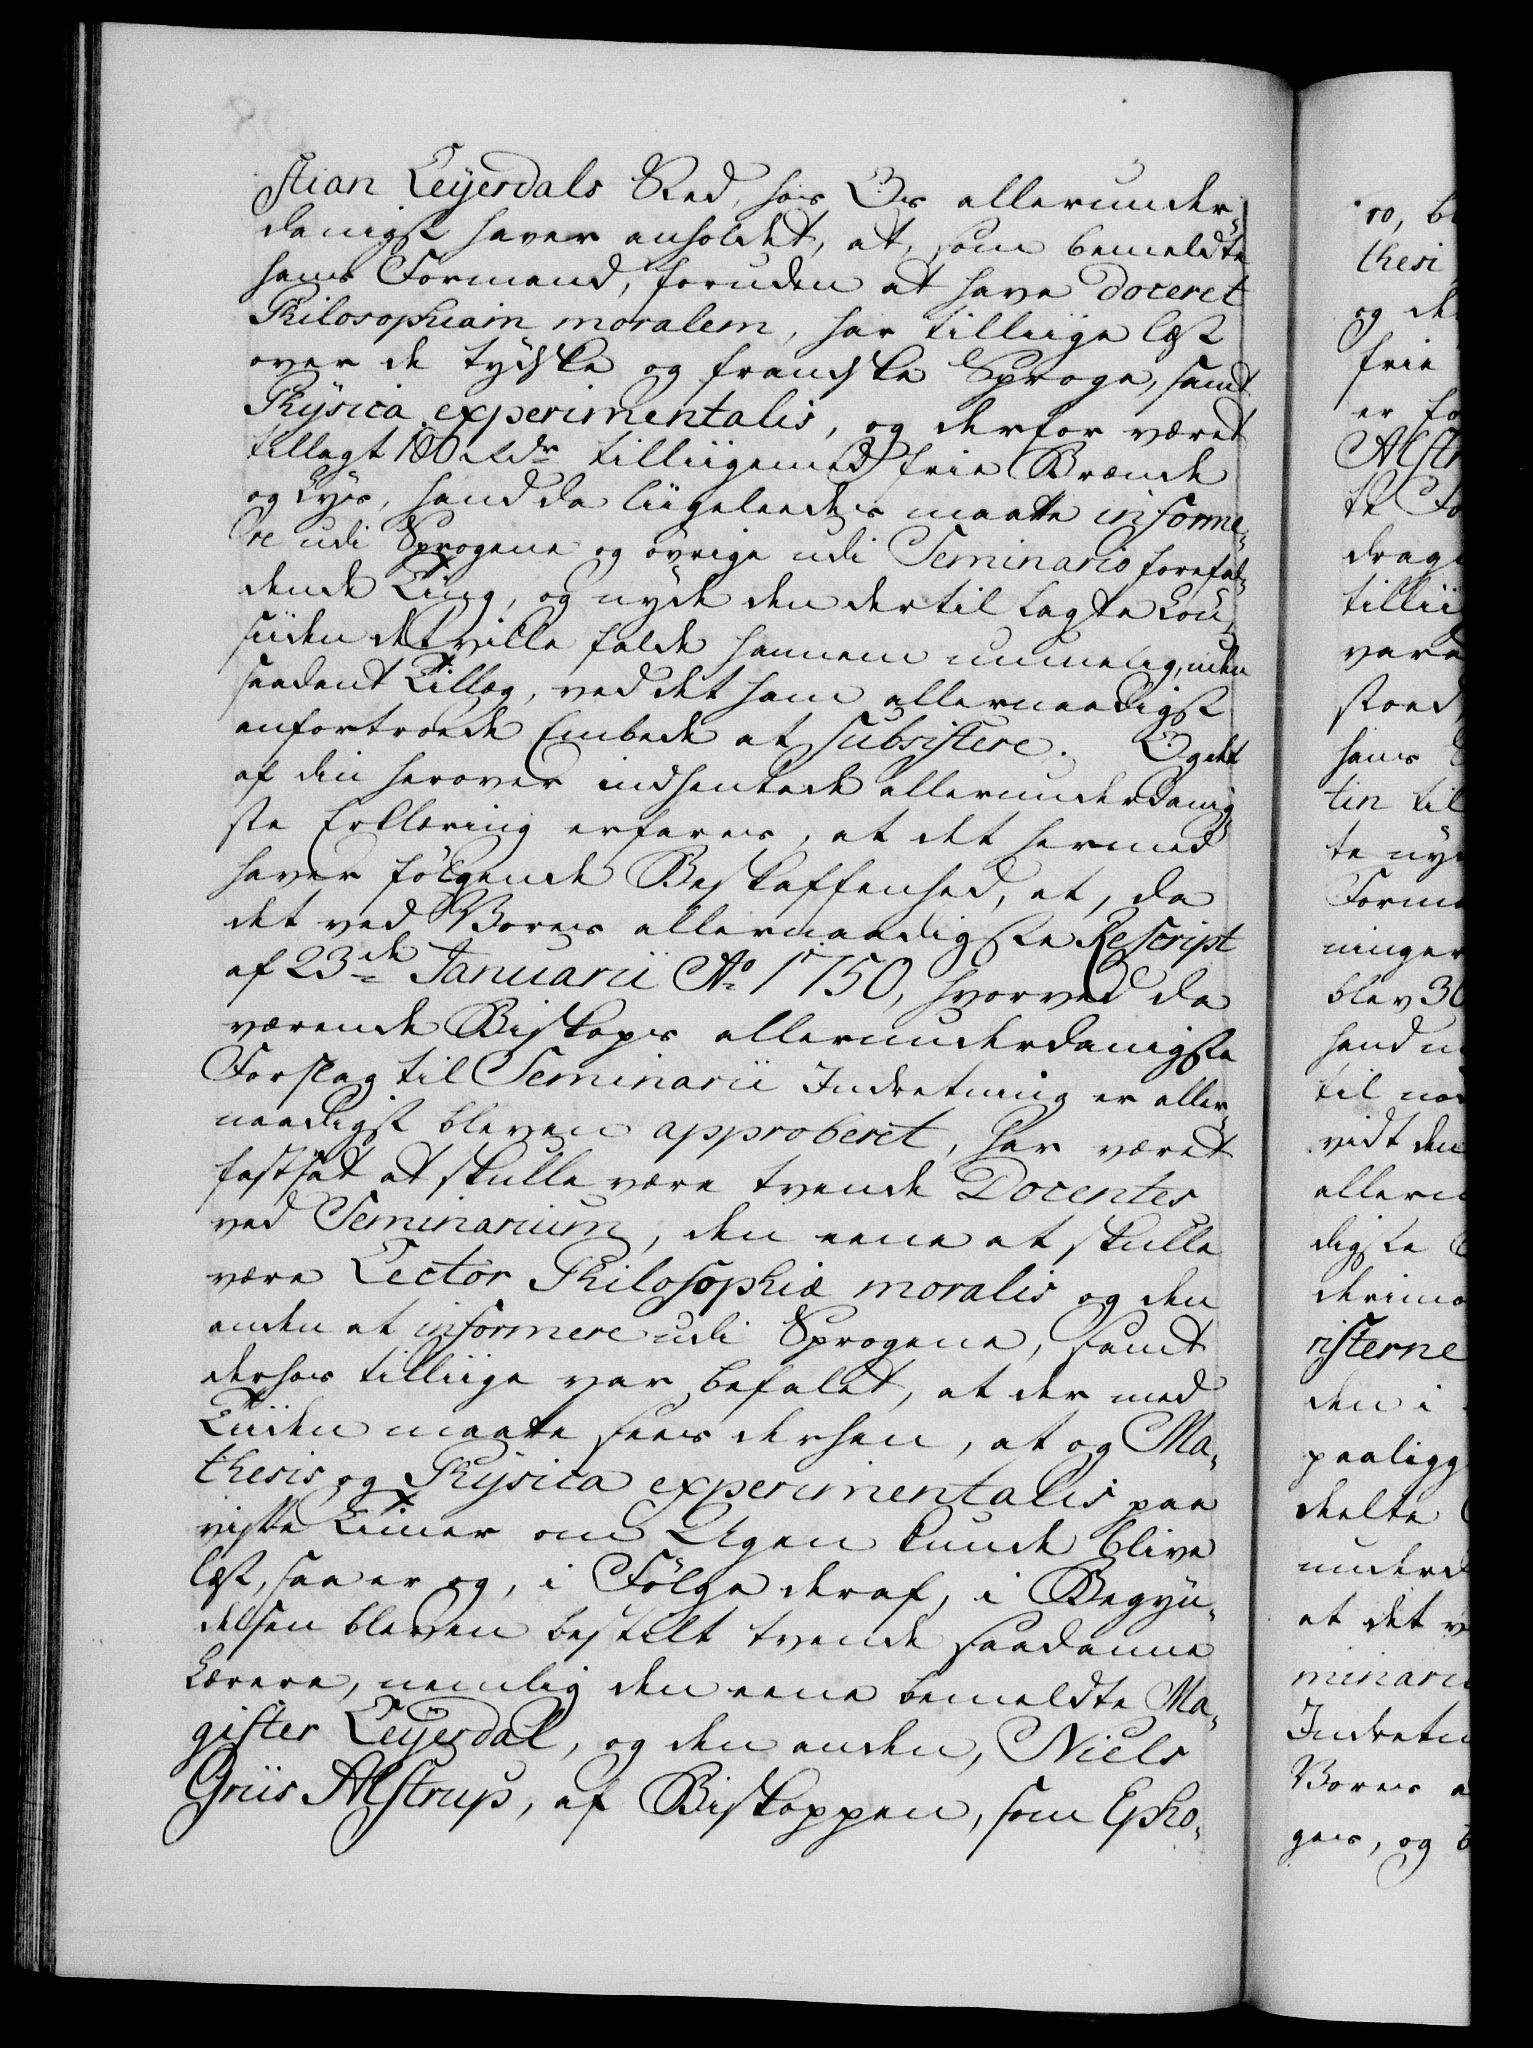 stian Leyerdals Sted, hos Os allerunder-
danigst haver anholdet, at, som bemeldte
hans Formand, foruden at have doceret
Philosophiam moralem, har tilliige læst
over de tydske og franske Sproge, samt
Physica experimentalis, og derfor været
tillagt 100 Rdr tilligemed frie Brænde
og Lys, hand da liigeleedes maatte informe-
re udi Sprogene og övrige udi Seminario forefal-
dende Ting, og nyde den dertil lagte Lön,
siiden det ville falde hannem umuelig, uden
saadant Tillæg, ved det ham allernaadigst
anfortroede Embede at subsistere. Og det
af din herover indhentede allerunderdanig-
ste Erklæring erfares, at det hermed
haver fölgende Beskaffenhed, at, da
det ved Vores allernaadigste Rescript
af 23de Januarii Ao 1750, hvorved da
værende Biskops allerunderdanigste
Forslag til Seminarii Indretning er aller-
naadigst bleven approberet, har været
fastsat at skulle være tvende Docentes
ved Seminarium, den eene at skulle
være Lector Philosophiæ moralis og den
anden at informere udi Sprogene, samt
derhos tilliige var befalet, at der med
Tiiden maatte sees derhen, at og Ma-
thesis og Physica experimentalis paa
visse Timer om Ugen kunde blive
læst, saa er og, i Fölge deraf, i Begyn-
delsen bleven bestilt tvende saadanne
Lærere, nemlig den eene bemeldte Ma-
gister Leyerdal, og den anden, Niels
Griis Alstrup, af Biskoppen, som Epho-
ro, b
thesi
og de
frie
er fo
Alstr
te Fo
drag
tillii
vare
stoed
hans
tin til
te ny
Forma
ninger
blev 30
hand
til
vidt den
allern
digste
derimo
risterne
den i
paaligg
deelte
underd
at det v
minari
Indretn
Vores a
ges, og b